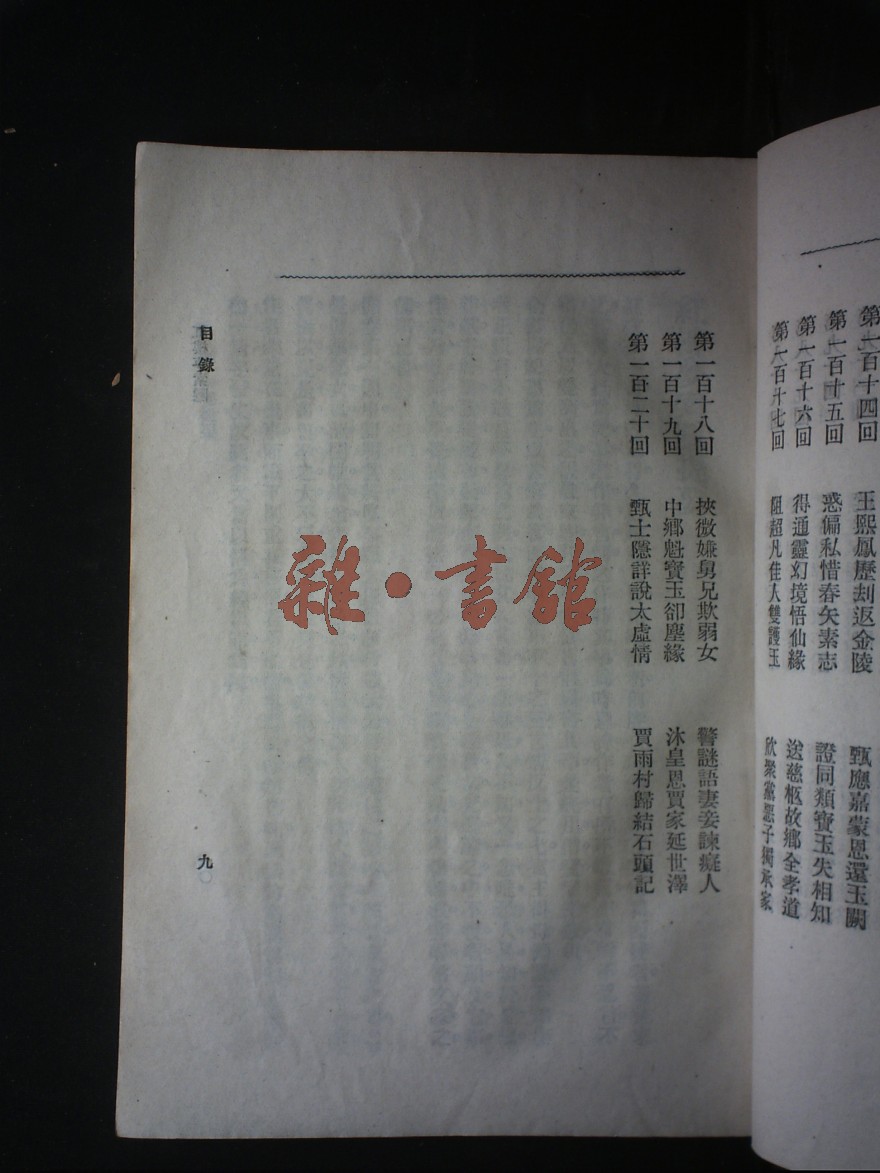 第一百十四回　王熙鳳歷刦返金陵　甄應嘉蒙恩還玉闕
第一百十五回　惑偏私惜春矢素志　證同類寶玉失相知
第一百十六回　得通靈幻境悟仙緣　送慈柩故鄉全孝道
第一百十七回　阻超凡佳人雙護玉　欣聚黨惡子獨承家
第一百十八回　挾微嫌舅兄欺弱女　警謎語妻妾諫癡人
第一百十九回　中鄉魁寶玉卻塵緣　沐皇恩賈家延世澤
第一百二十回　甄士隱詳說太虛情　賈雨村歸結石頭記
目錄
九
雜·書館